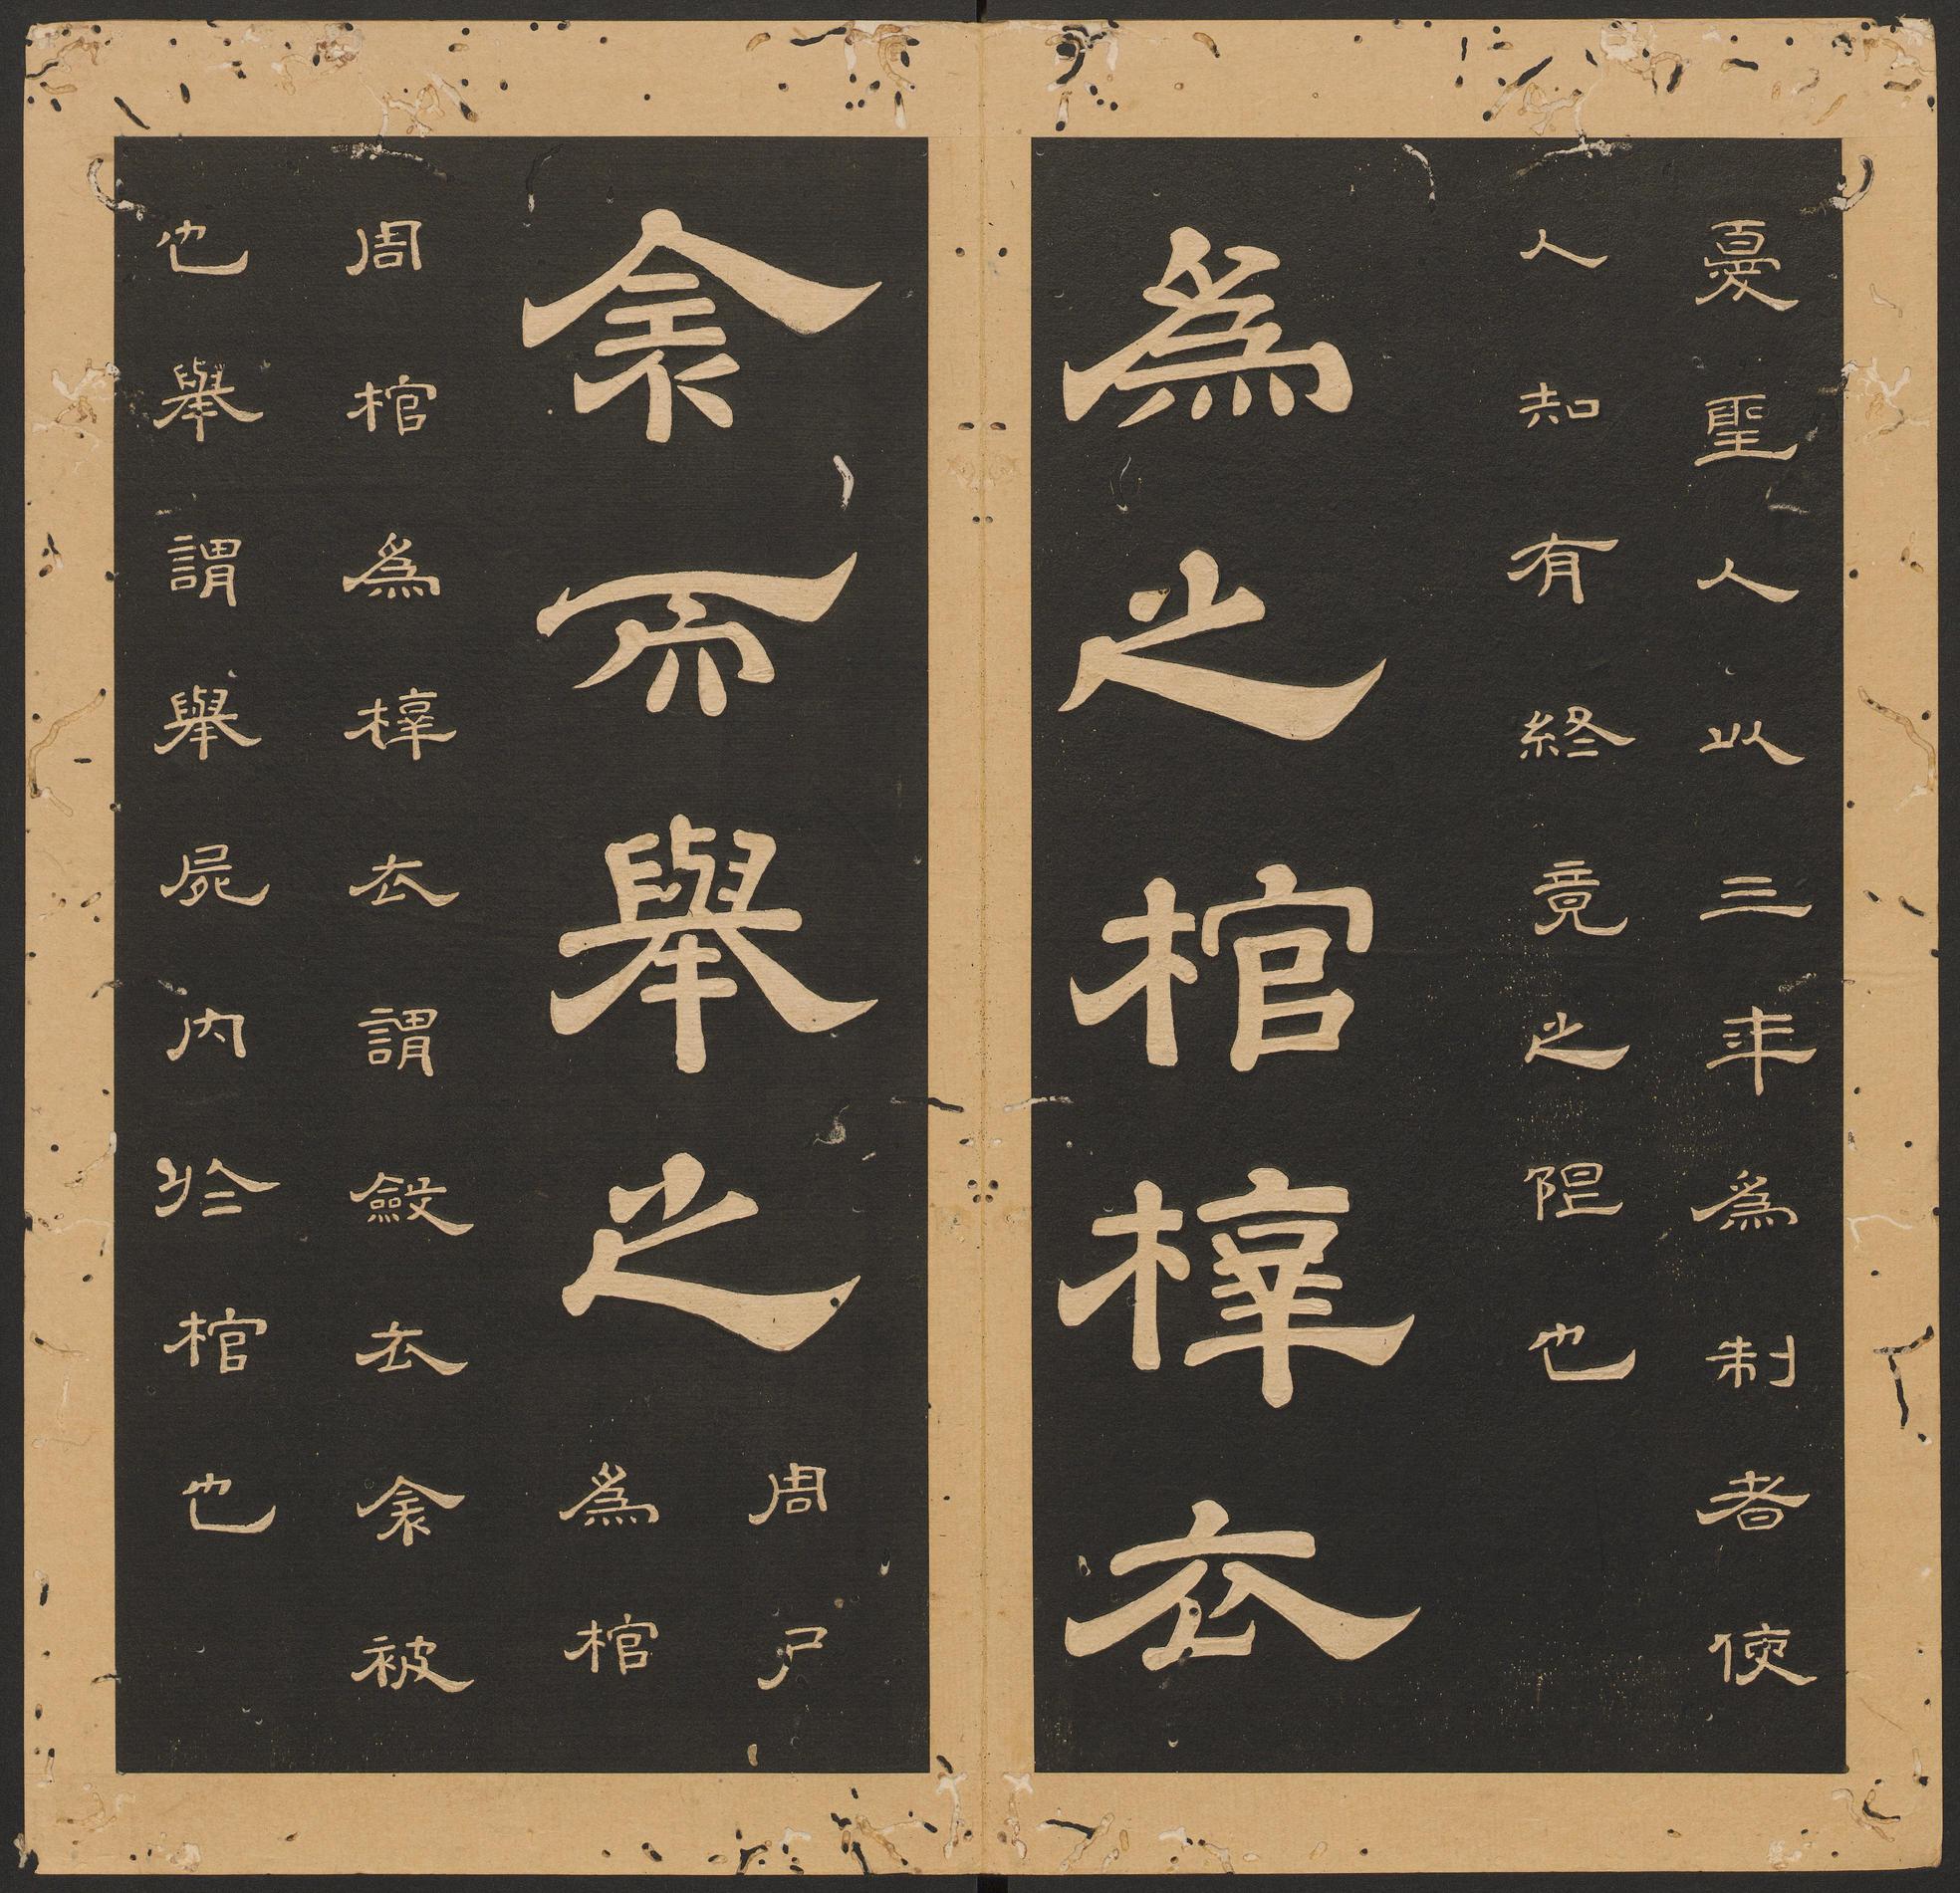 憂聖人以三年爲制者使
人知有終竟之限也
爲之棺椁衣
衾而舉之
周尸
爲棺
周棺爲椁衣謂斂衣衾被
也舉謂舉屍內於棺也